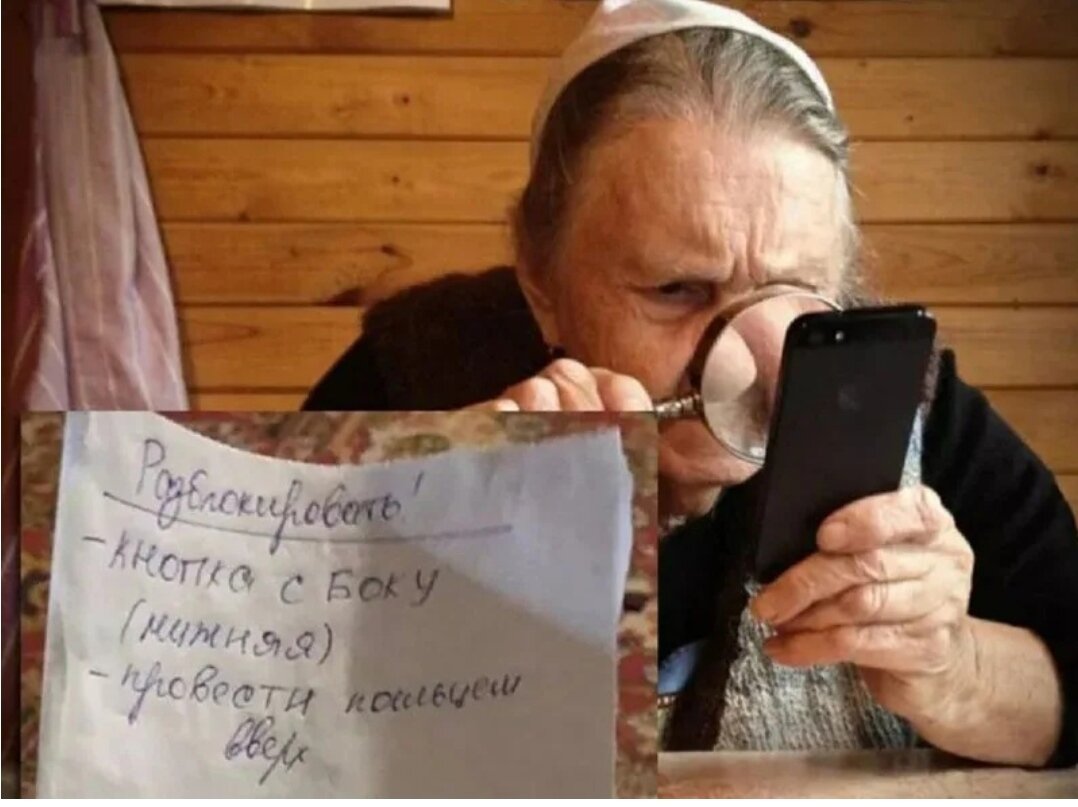 Разблокировать!
- кнопка с боку
(нижняя)
- провести пальцем
вверх